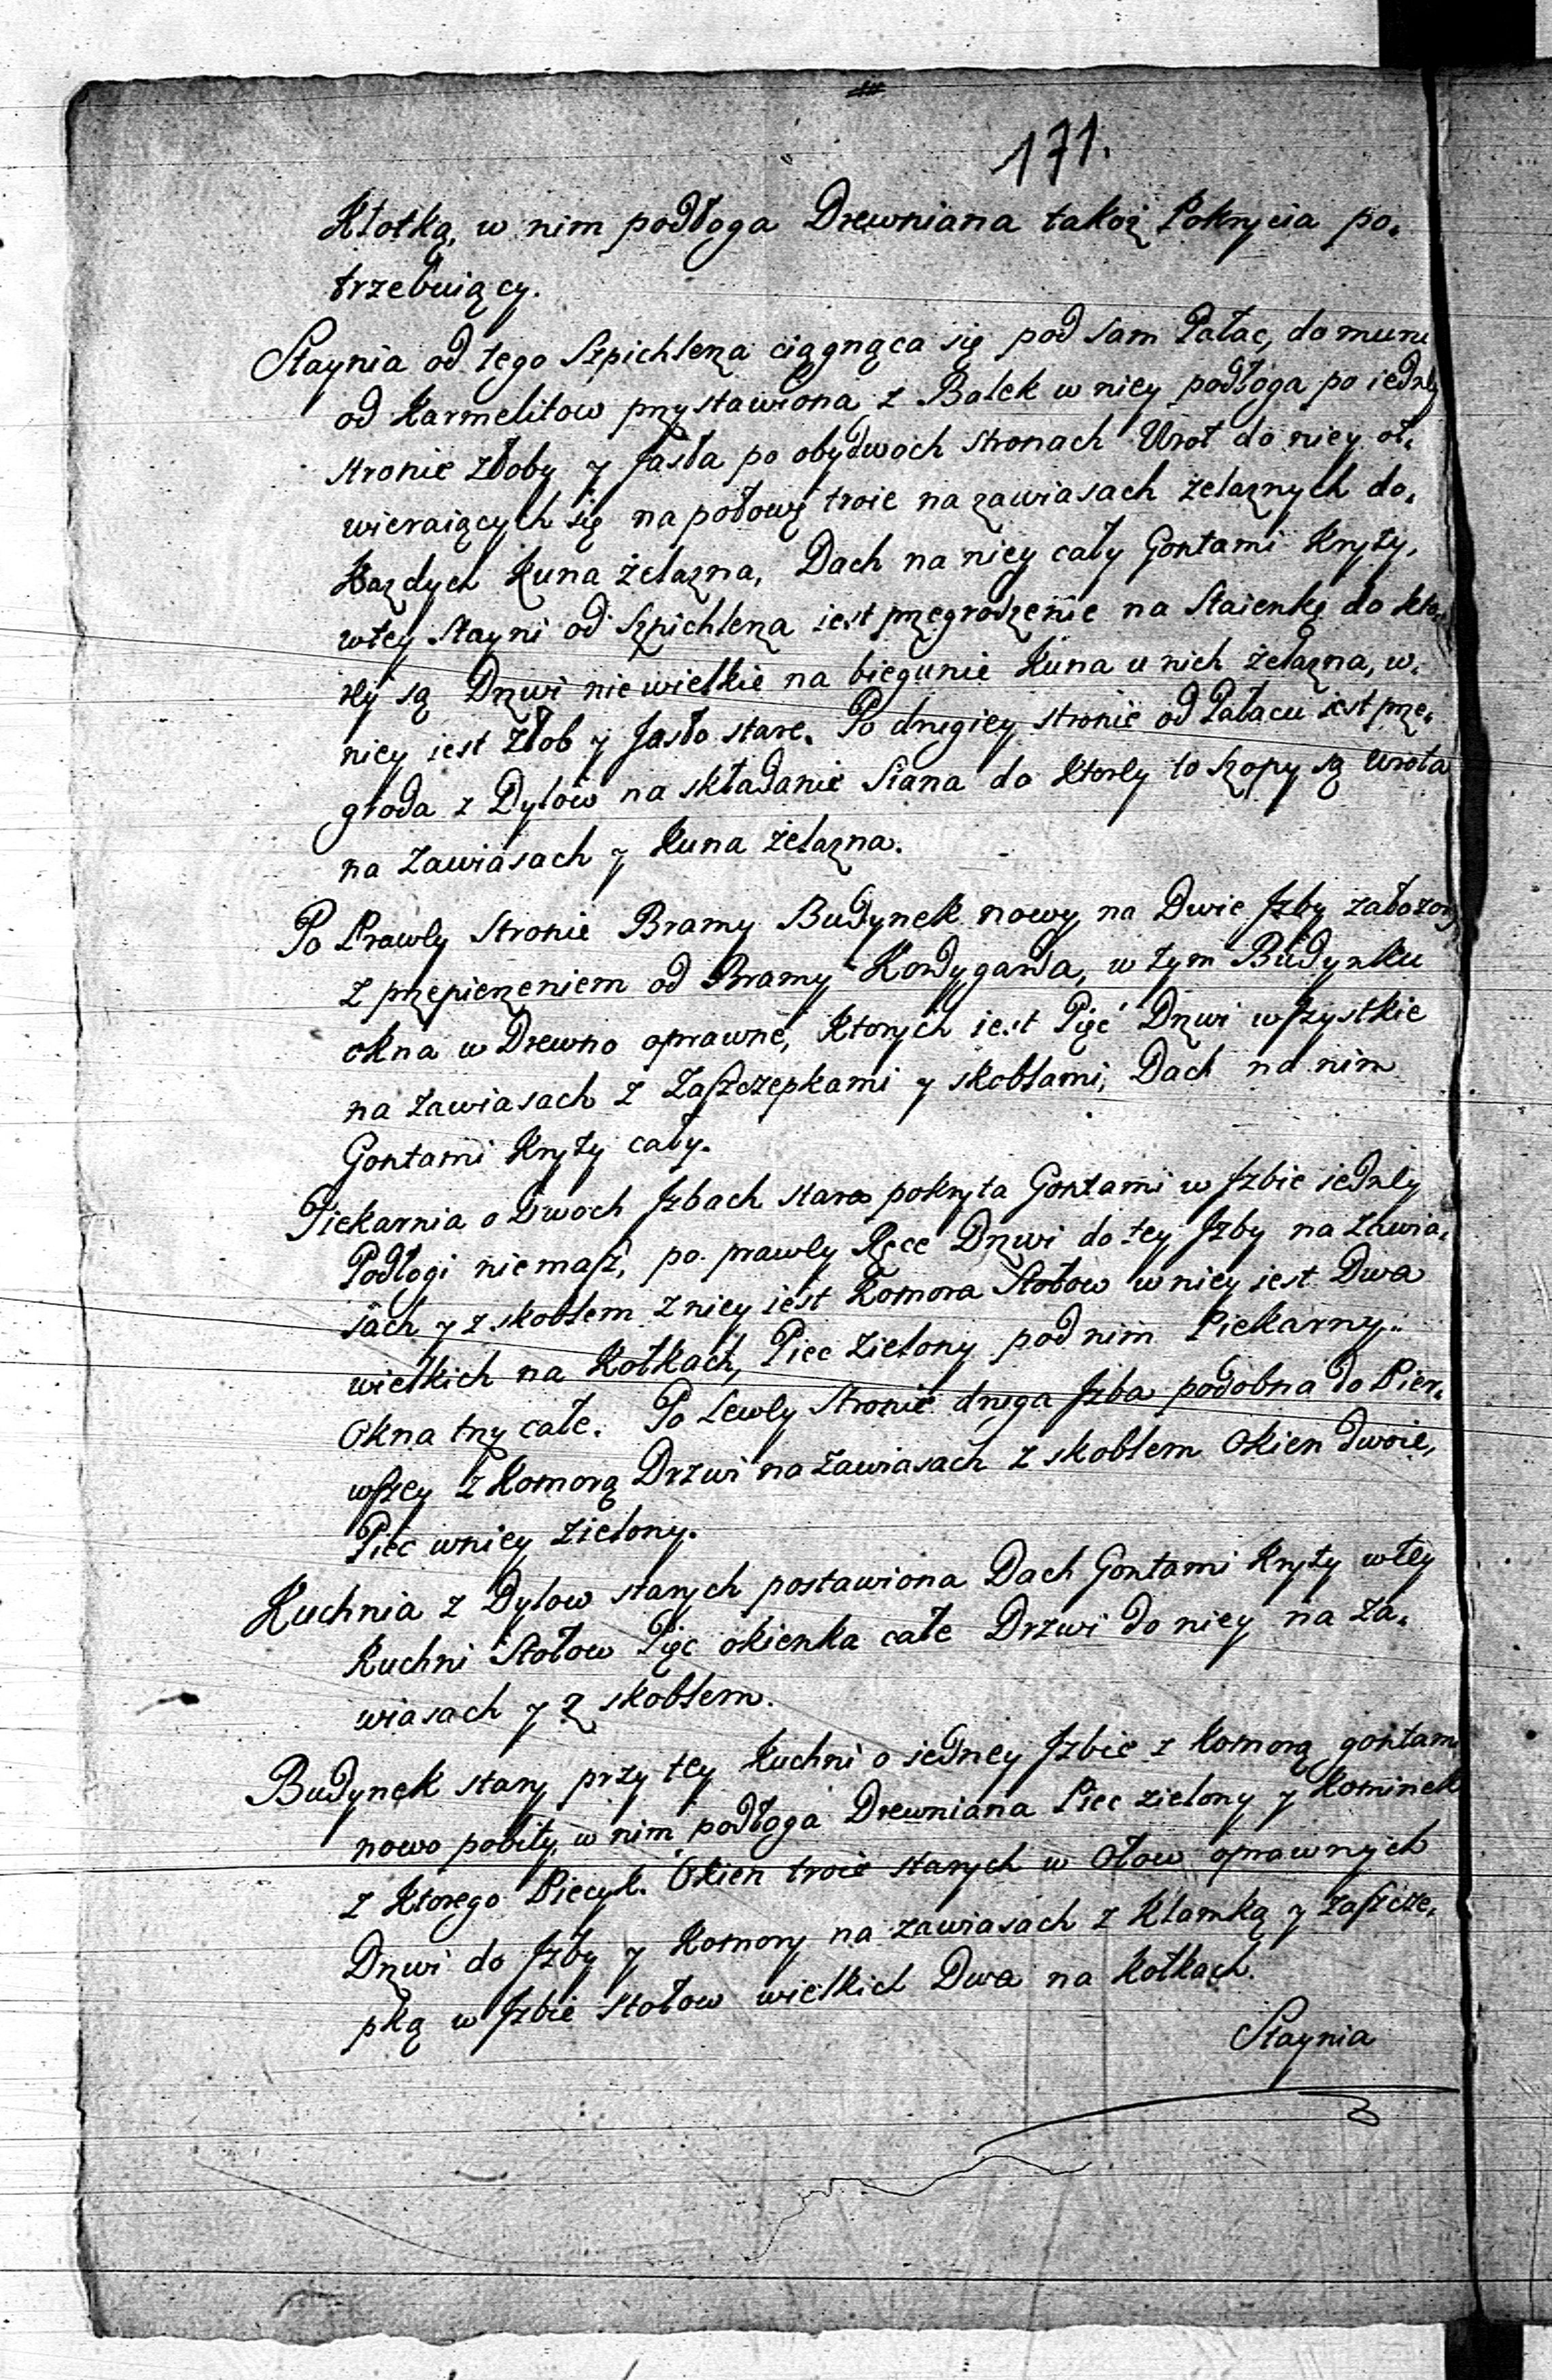 171.
Kłotką, w nim podłoga Drewniana takoż Pokrycia po-
trzebuiący.
Staynia od tego Szpichlerza ciągnąca się pod sam Pałac, do muru
od Karmelitow przystawiona z Balek w niey podłoga po iedney
stronie złoby y Jasła po obydwoch stronach Wrot do niey ot-
wieraiących się na połowę troie na zawiasach żelaznych do-
Kazdych Kuna żelazna, Dach na niey cały Gontami Kryty,
wtey Stayni od Szpichlerza iest przegrodzenie na Staienkę do kto-
rey są Drzwi niewielkie na biegunie Kuna u nich żelazna, w-
niey iest złob y Jasło stare. Po drugiey stronie od Pałacu iest prze-
groda z Dylow na składanie Siana do Ktorey to szopy są wrota
na zawiasach y Kuna żelazna.
Po Prawey Stronie Bramy Budynek nowy, na Dwie Jzby założony
z przepierzeniem od Bramy Kordygarda, w tym Budynku
okna w Drewno oprawne, Ktorych iest Pięć Drzwi wszystkie
na zawiasach z Zaszczepkami y skoblami, Dach na nim
Gontami Kryty cały.
Piekarnia o Dwoch Jzbach stara pokryta Gontami w Jzbie iedney
Podłogi niemasz, po prawey Ręce Drzwi do tey Jzby na zawia-
sach y z skoblem z niey iest Komora Stołow w niey iest Dwa
wielkich na Kołkach, Piec zielony pod nim Piekarny..
Okna trzy całe. Po Lewey Stronie druga Jzba podobna do Pier-
wszey z Komorą Drzwi na zawiasach z skoblem Okien dwoie,
Piec wniey zielony.
Kuchnia z Dylow starych postawiona Dach Gontami Kryty wtey
Kuchni Stołow Pięc okienka całe Drzwi do niey na za-
wiasach y z skoblem.
Budynek stary przy tey Kuchni o iedney Jzbie z Komorą gontami
nowo pobity, w nim podłoga Drewniana Piec zielony y Kominek
z Ktorego Piecyk. Okien troie starych w ołow oprawnych
Drzwi do Jzby y Komory na zawiasach z Klamką y zaszcze-
pką w Jzbie stołow wielkich Dwa na Kołkach.
Staynia